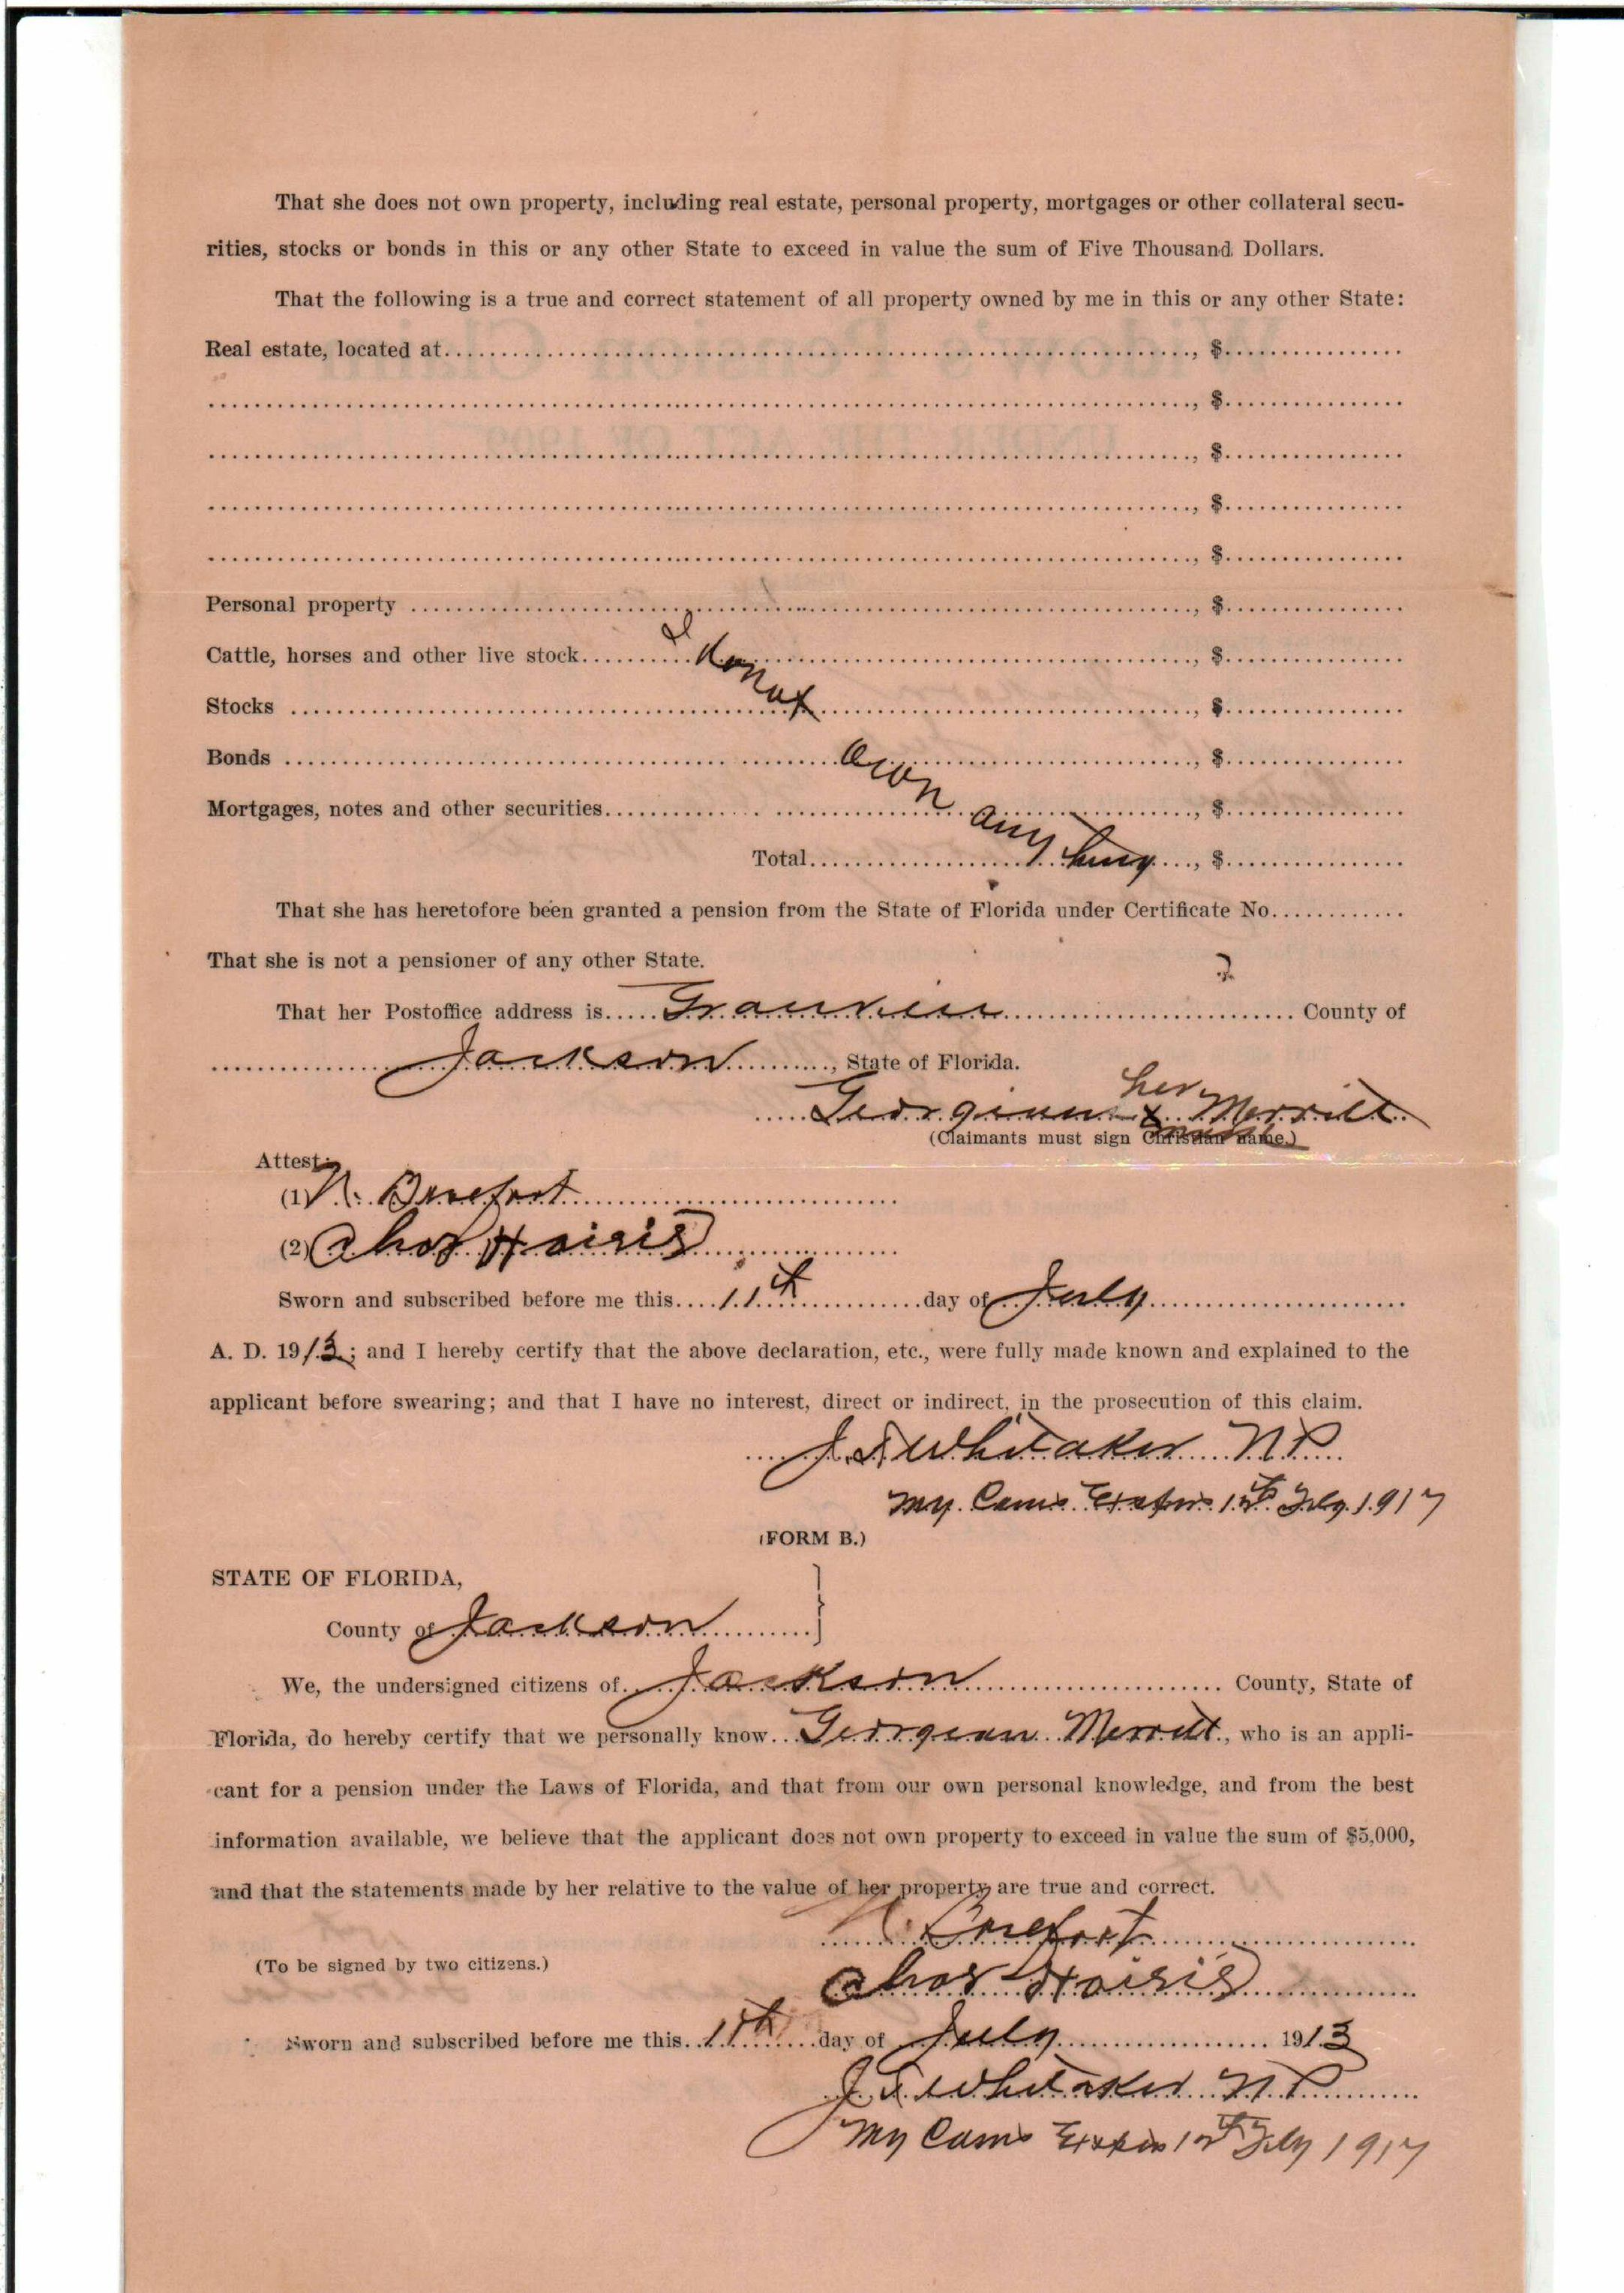 That she does not own property, including real estate, personal property, mortgages or other collateral secu-
rities, stocks or bonds in this or any other State to exceed in value the sum of Five Thousand Dollars.
That the following is a true and correct statement of all property owned by me in this or any other State:
Real estate, located at ........ , $ ........
........ , $ ........
........ , $ ........
........ , $ ........
........ , $ ........
Personal property ........ , $ ........
Cattle, horses and other live stock ........ , $ ........
Stocks ........ , $ ........
Bonds ........ , $ ........
Mortgages, notes and other securities ........ , $ ........
Total ........ , $ ........
I do not own any thing
That she has heretofore been granted a pension from the State of Florida under Certificate No. ........
That she is not a pensioner of any other State.
That her Postoffice address is ........ County of
Jackson, State of Florida.
Georgiann her x mark Merritt
(Claimants must sign Christian name.)
Attest:
(1) N. Barefoot
(2)
Sworn and subscribed before me this 11th day of July
A. D. 1913; and I hereby certify that the above declaration, etc., were fully made known and explained to the
applicant before swearing; and that I have no interest, direct or indirect, in the prosecution of this claim.
Whitaker N.P.
My Coms Expires 12th July 1917
(FORM B.)
STATE OF FLORIDA,
County of Jackson
We, the undersigned citizens of Jackson County, State of
Florida, do hereby certify that we personally know Georgeann Merritt, who is an appli-
cant for a pension under the Laws of Florida, and that from our own personal knowledge, and from the best
information available, we believe that the applicant does not own property to exceed in value the sum of $5,000,
and that the statements made by her relative to the value of her property are true and correct.
N. Barefoot
(To be signed by two citizens.)
Sworn and subscribed before me this 11th day of July 1913
Whitaker N P
My Coms Expires 12th July 1917